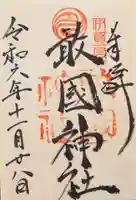 奉拝
最國神社
令和六年十一月廿八日